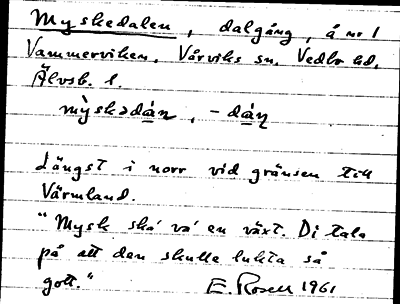 Myskedalen, dalgång, å nr 1
Vammerviken, Vårviks sn. Vedbo hd.
Älvsb. l.
mỳskədán, -dáņ
Längst i norr vid gränsen till
Värmland.
"Mysk ska' va' en växt. Di tala
på att den skulle lukta så
gott." E. Rosell 1961